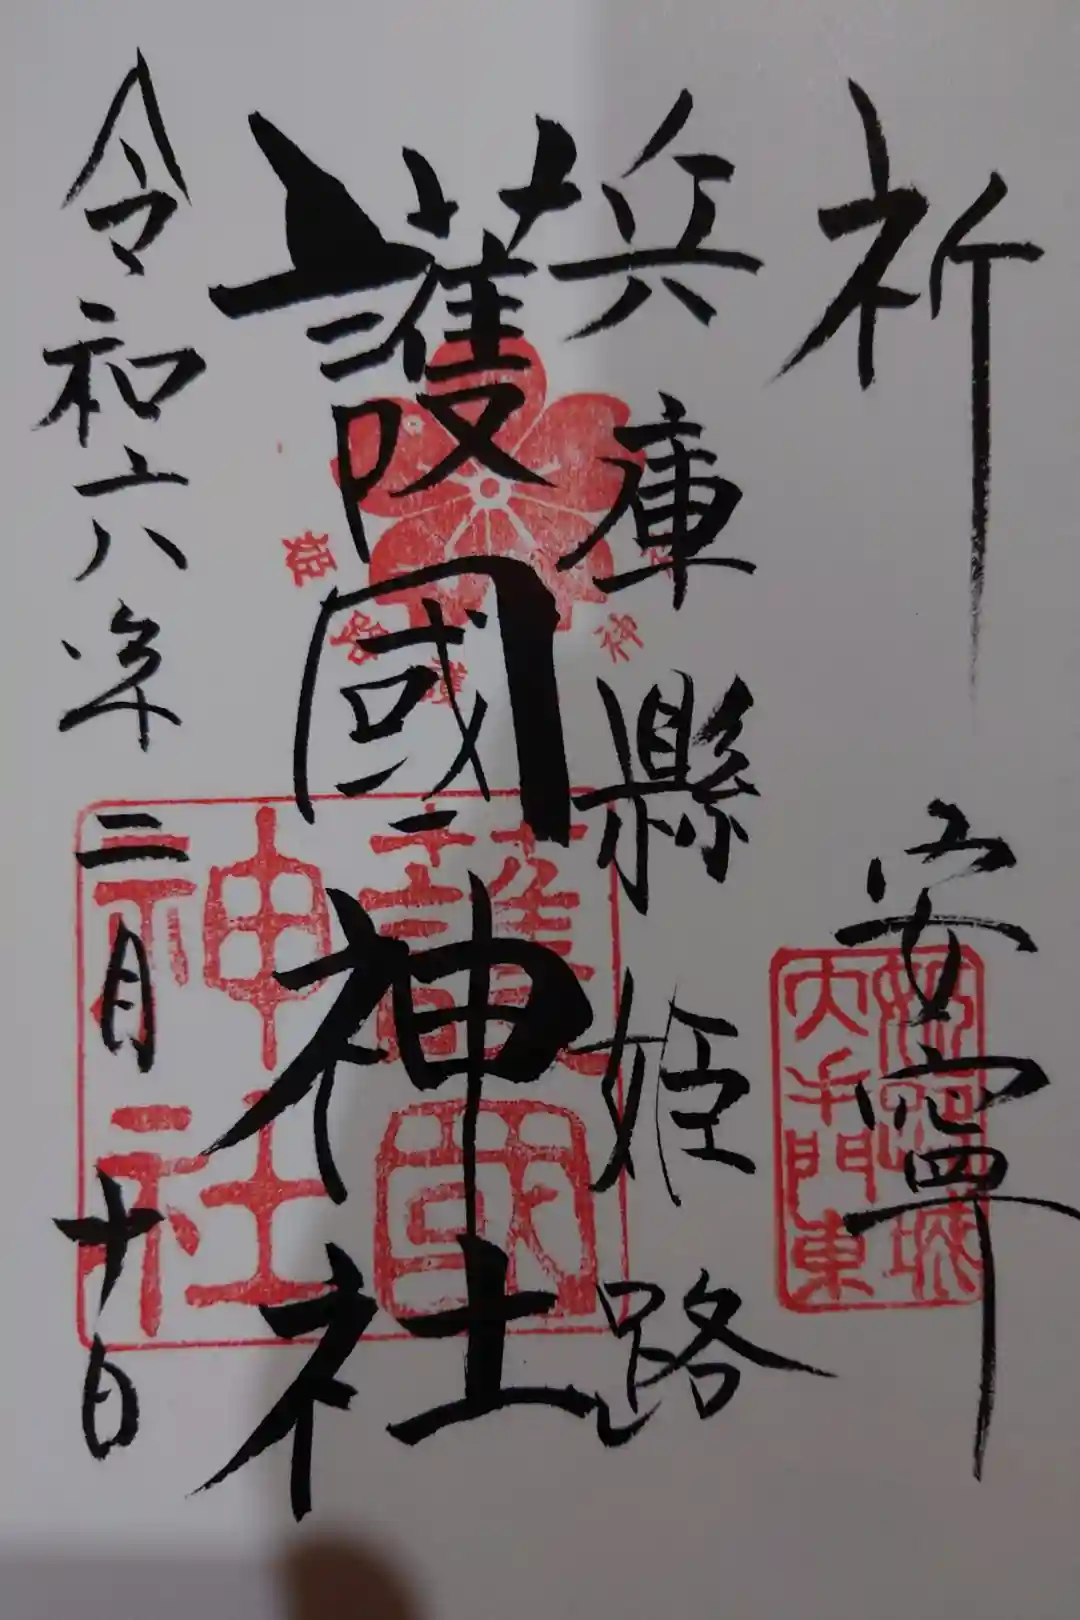 祈 安寧
兵庫縣姫路
護國神社
令和六年二月十日
姫路護 神
護國
神社
大手門東